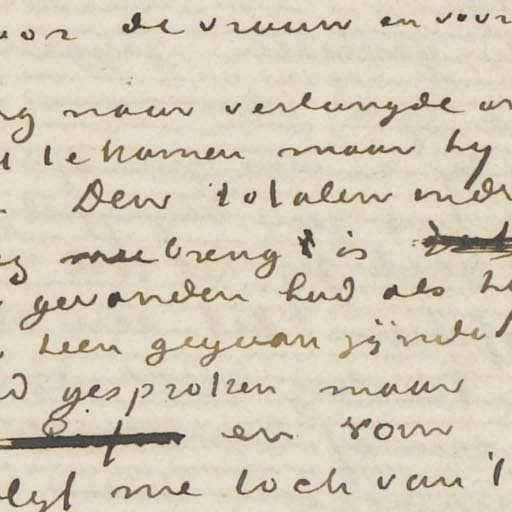 voor de vrouw en voor
ng naar verlangde
te komen maar hy
Den totalen indr
breng is
gevonden had als h
heen gegaan zijnde
gesproken maar
en rom
blyf me toch van 't